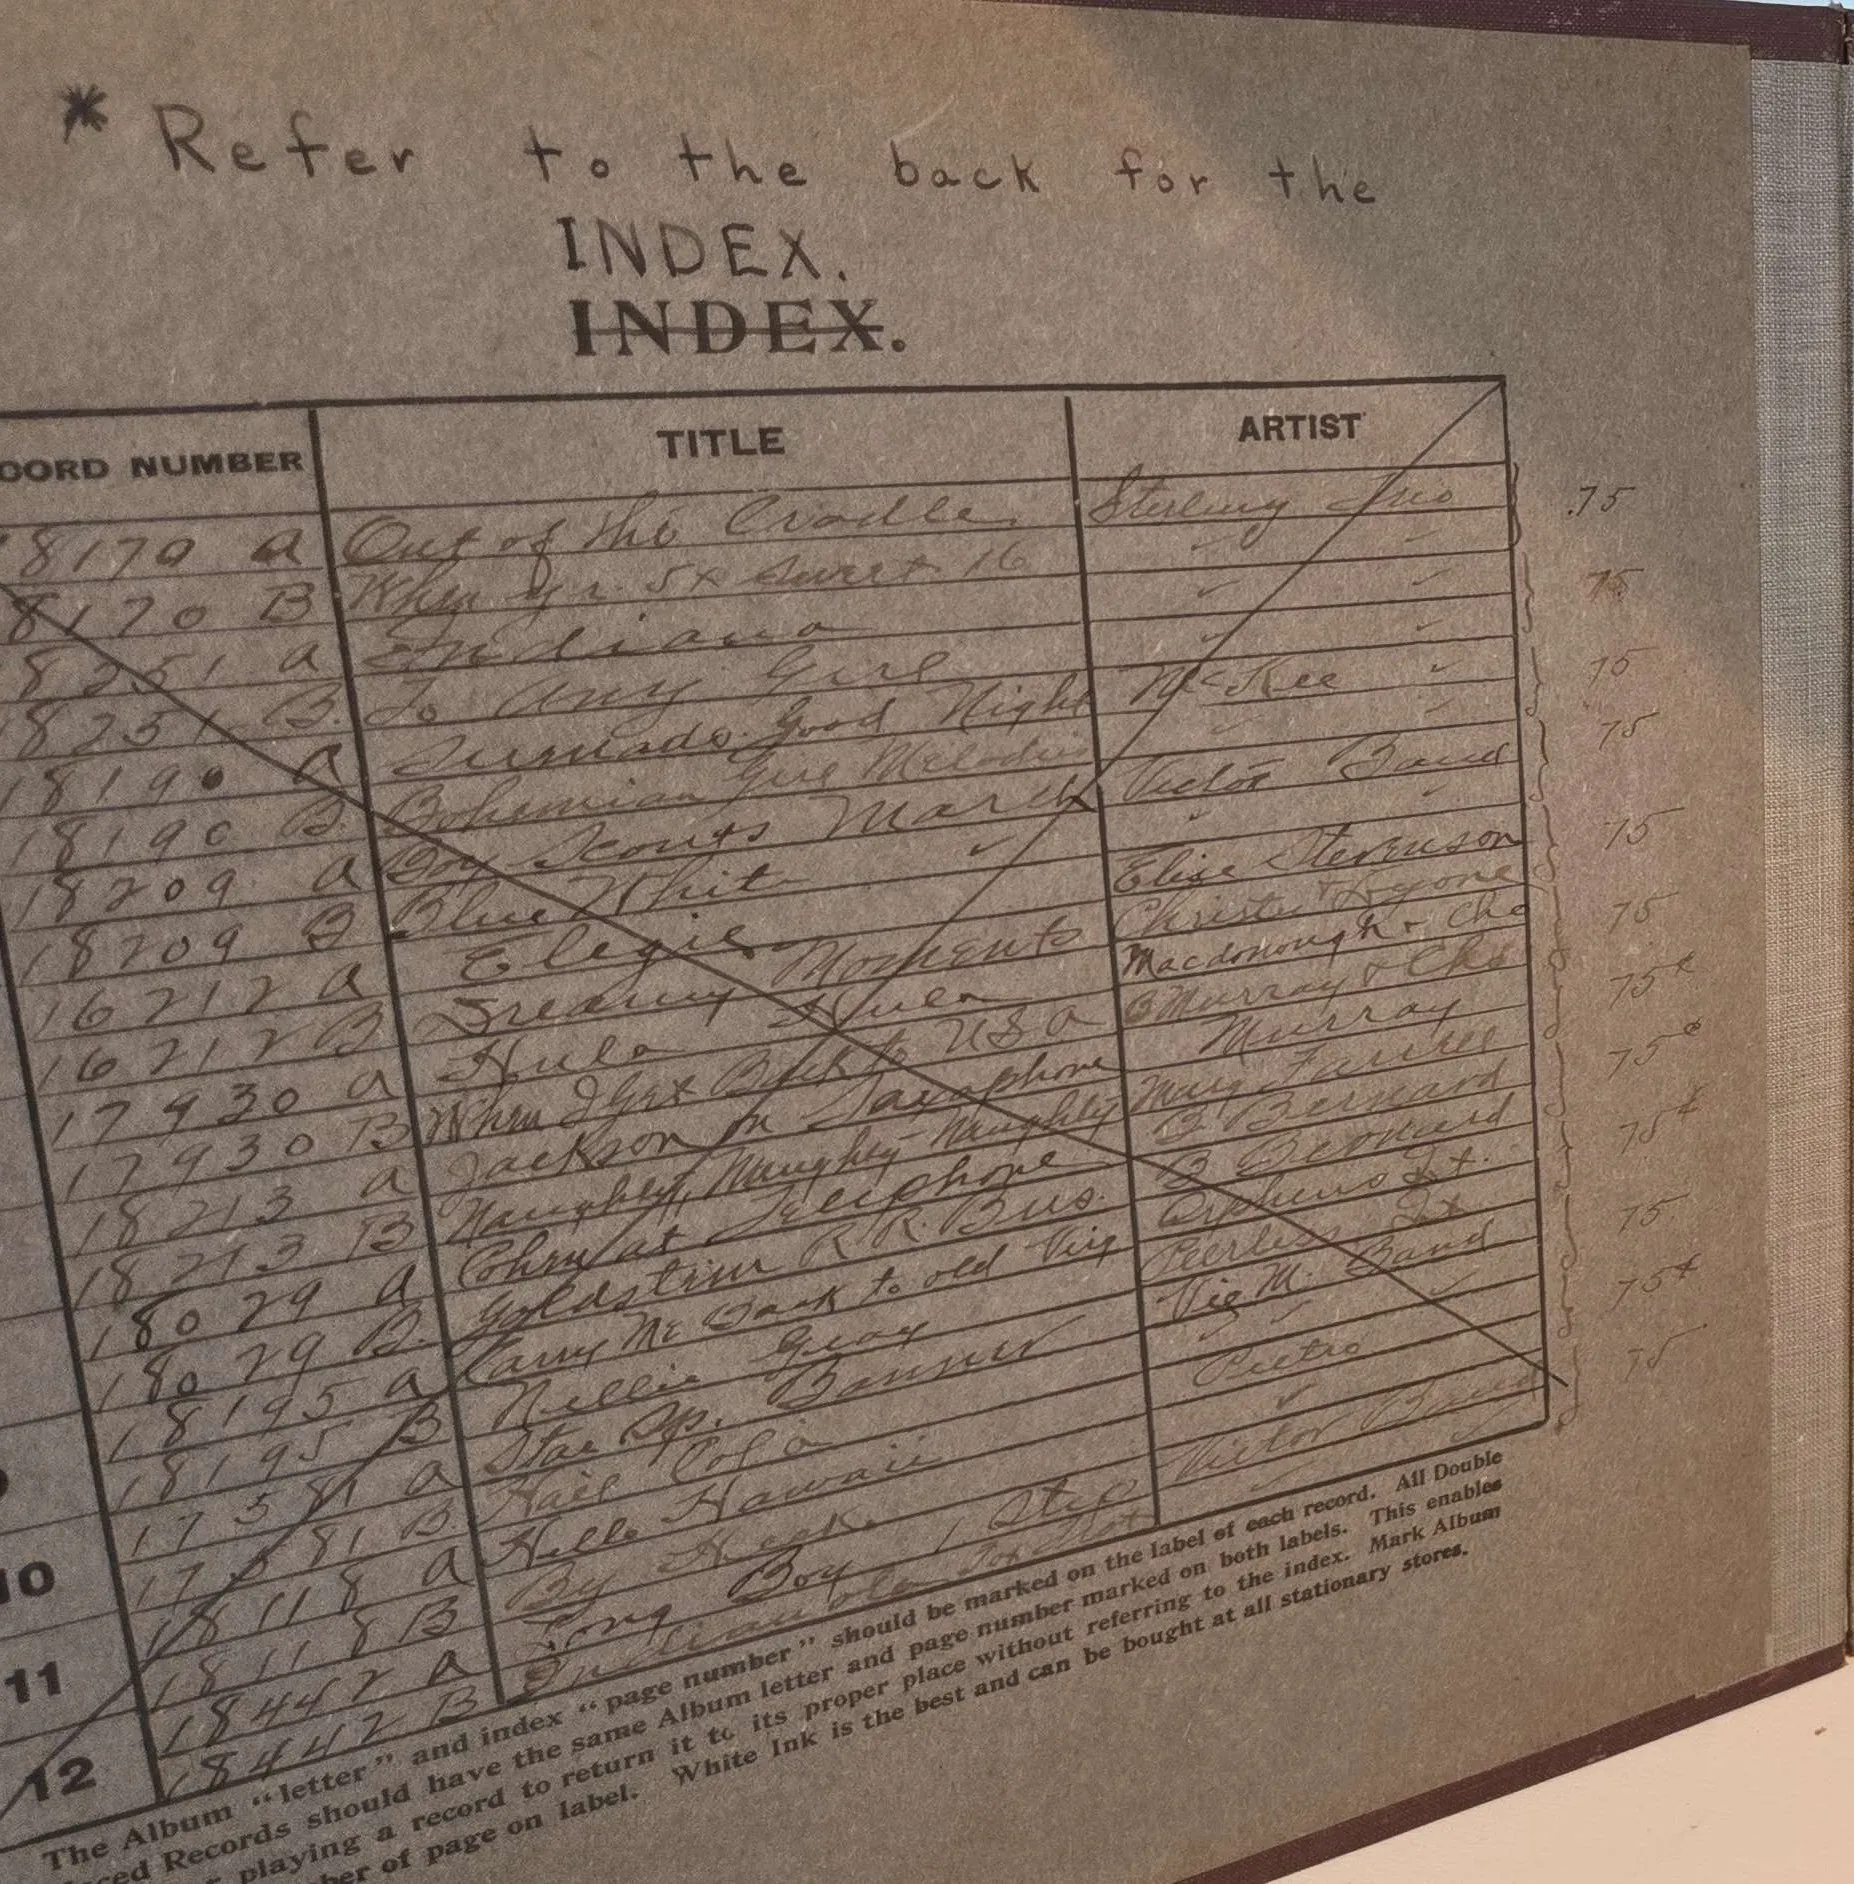 * Refer to the back for the
INDEX.
INDEX.
CORD NUMBER TITLE ARTIST
18170 a Out of the Cradle Sterling Trio .75
18170 B When yr. 5x Sweet 16 " "
18251 a Indiana " " 75
18251 B. To any Girl " "
18190 a Serenado. Good Night McKee " 75
18190 B. Bohemian Girl Melodies " "
18209 a Boy Scouts March Victor Band 75
18209 B Blue White " " "
16212 a Elegie Elise Stevenson 75
16212 B Dreamy Moments Christie & Lyons
17930 a Hula Hula Macdonough & Cho 75
17930 B When I Get Back to USA B Murray & Cho
18213 a Jackson on Saxophone Murray 75¢
18213 B Naughty, Naughty Naughty Mary
18029 a Cohn at Telephone B Bernard 75¢
18029 B. Goldstein R.R. Bus. B Bernard
18195 a Carry Me Back to old Virg Orpheus Qt. 75¢
18195 B Nellie Gray Peerless Qt
17581 a Star Sp. Banner Vic M. Band 75
17581 B Hail Col a " "
18118 a Hello Hawaii Pietro 75¢
18118 B By Heck "
18442 a Long Boy 1 Step Victor Band 75
18442 B
10
11
12
The Album "letter" and index "page number" should be marked on the label of each record. All Double
aced Records should have the same Album letter and page number marked on both labels. This enables
r playing a record to return it to its proper place without referring to the index. Mark Album
ber of page on label. White Ink is the best and can be bought at all stationary stores.